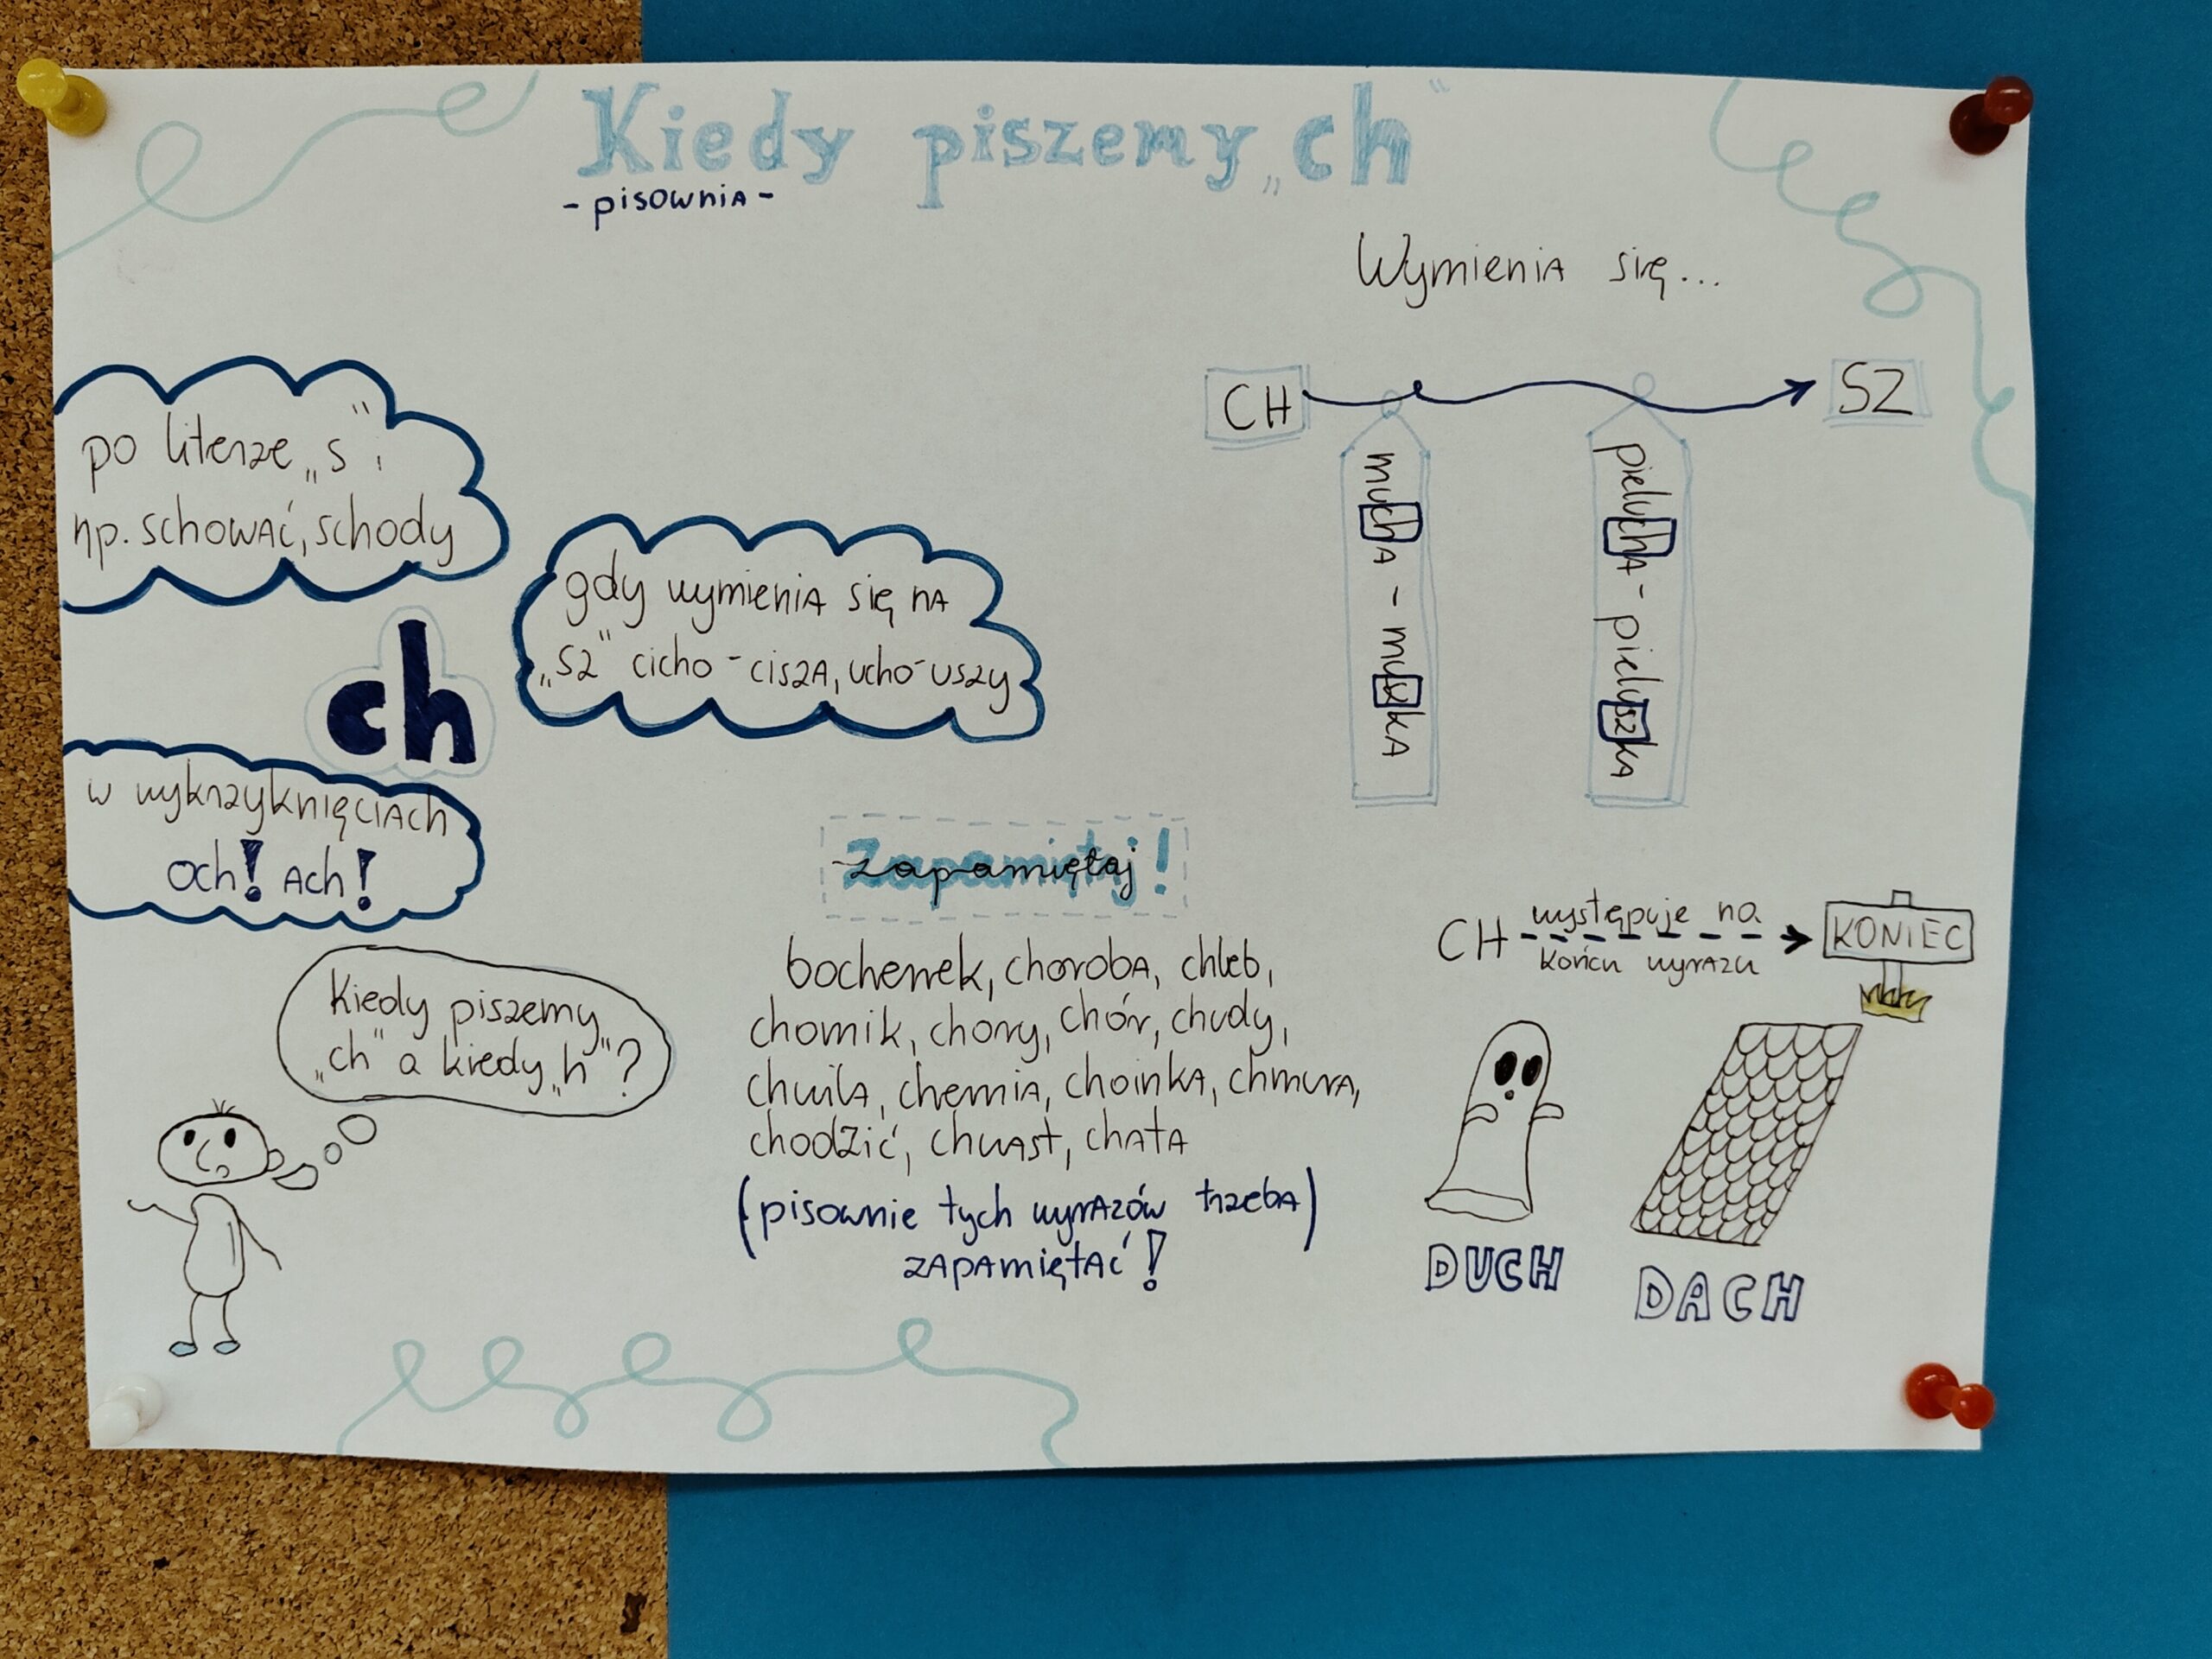 Kiedy piszemy „ch”
- pisownia -
Wymienia się...
CH
SZ
mucha - muszka
pielucha - pieluszka
po literze „s”;
np. schować, schody
gdy wymienia się na
„sz” cicho - cisza, ucho - uszy
ch
w wykrzyknięciach
och! ach!
Zapamiętaj!
bochenek, choroba, chleb,
chomik, chory, chór, chudy,
chwila, chemia, choinka, chmura,
chodzić, chwast, chata
(pisownie tych wyrazów trzeba)
zapamiętać!
CH występuje na
końcu wyrazu
KONIEC
DUCH
DACH
Kiedy piszemy
„ch” a kiedy „h”?